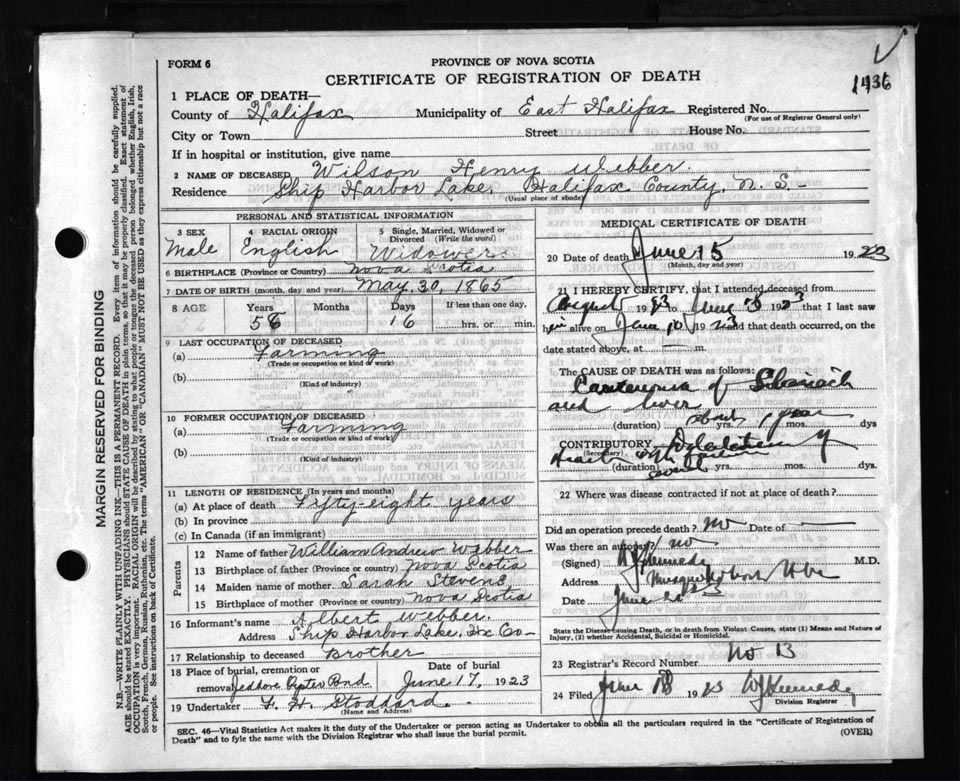 1436
FORM 6
PROVINCE OF NOVA SCOTIA
CERTIFICATE OF REGISTRATION OF DEATH
1 PLACE OF DEATH—
County of Halifax Municipality of East Halifax Registered No.
(For use of Registrar General only)
City or Town Street House No.
If in hospital or institution, give name
2 NAME OF DECEASED Wilson Henry Webber.
Residence Ship Harbor Lake, Halifax County, N. S.-
(Usual place of abode)
PERSONAL AND STATISTICAL INFORMATION
3 SEX Male
4 RACIAL ORIGIN English
5 Single, Married, Widowed or Divorced (Write the word) Widower
6 BIRTHPLACE (Province or Country) Nova Scotia
7 DATE OF BIRTH (month, day and year) May, 30, 1865
8 AGE Years Months Days If less than one day,
58 16 hrs. or min.
9 LAST OCCUPATION OF DECEASED
(a) Farming
(Trade or occupation or kind of work)
(b)
(Kind of industry)
10 FORMER OCCUPATION OF DECEASED
(a) Farming
(Trade or occupation or kind of work)
(b)
(Kind of industry)
11 LENGTH OF RESIDENCE (In years and months)
(a) At place of death Fifty-eight years
(b) In province
(c) In Canada (if an immigrant)
Parents
12 Name of father William Andrew Webber
13 Birthplace of father (Province or country) Nova Scotia
14 Maiden name of mother Sarah Stevens
15 Birthplace of mother (Province or country) Nova Scotia
16 Informant's name Albert Webber
Address Ship Harbor Lake, Hx Co-
17 Relationship to deceased Brother
18 Place of burial, cremation or removal Jeddore Oyster Pond
Date of burial June 17, 1923
19 Undertaker F. H. Stoddard.
(Name and Address)
MEDICAL CERTIFICATE OF DEATH
20 Date of death June 15 1923
(Month, day and year)
21 I HEREBY CERTIFY, that I attended deceased from
August 1923 to June 15 1923 that I last saw
him alive on June 10 1923 and that death occurred, on the
date stated above, at m.
The CAUSE OF DEATH was as follows:
Carcinoma of Stomach
and liver
(duration) about yrs. 1 year mos. dys
CONTRIBUTORY Dilatation of
(Secondary)
Heart
(duration) yrs. mos. dys.
22 Where was disease contracted if not at place of death?
Did an operation precede death? no Date of
Was there an autopsy? no
(Signed) W J Kennedy M.D.
Address Musquodoboit Hbr
Date June 1923
State the Disease causing Death, or in death from Violent Causes, state (1) Means and Nature of
Injury, (2) whether Accidental, Suicidal or Homicidal.
23 Registrar's Record Number No 13
24 Filed June 18 1923 WJ Kennedy
Division Registrar
SEC. 46—Vital Statistics Act makes it the duty of the Undertaker or person acting as Undertaker to obtain all the particulars required in the "Certificate of Registration of
Death" and to fyle the same with the Division Registrar who shall issue the burial permit.
(OVER)
MARGIN RESERVED FOR BINDING
N.B.—WRITE PLAINLY WITH UNFADING INK—THIS IS A PERMANENT RECORD. Every item of information should be carefully supplied.
AGE should be stated EXACTLY. PHYSICIANS should STATE CAUSE OF DEATH in plain terms, so that it may be properly classified. Exact statement of
OCCUPATION is very important. RACIAL ORIGIN will be described by stating to what people or tongue the deceased person belonged whether English, Irish,
Scotch, French, German, Russian, Ruthenian, etc. The terms "AMERICAN" or "CANADIAN" MUST NOT BE USED as they express citizenship but not a race
or people. See instructions on back of Certificate.